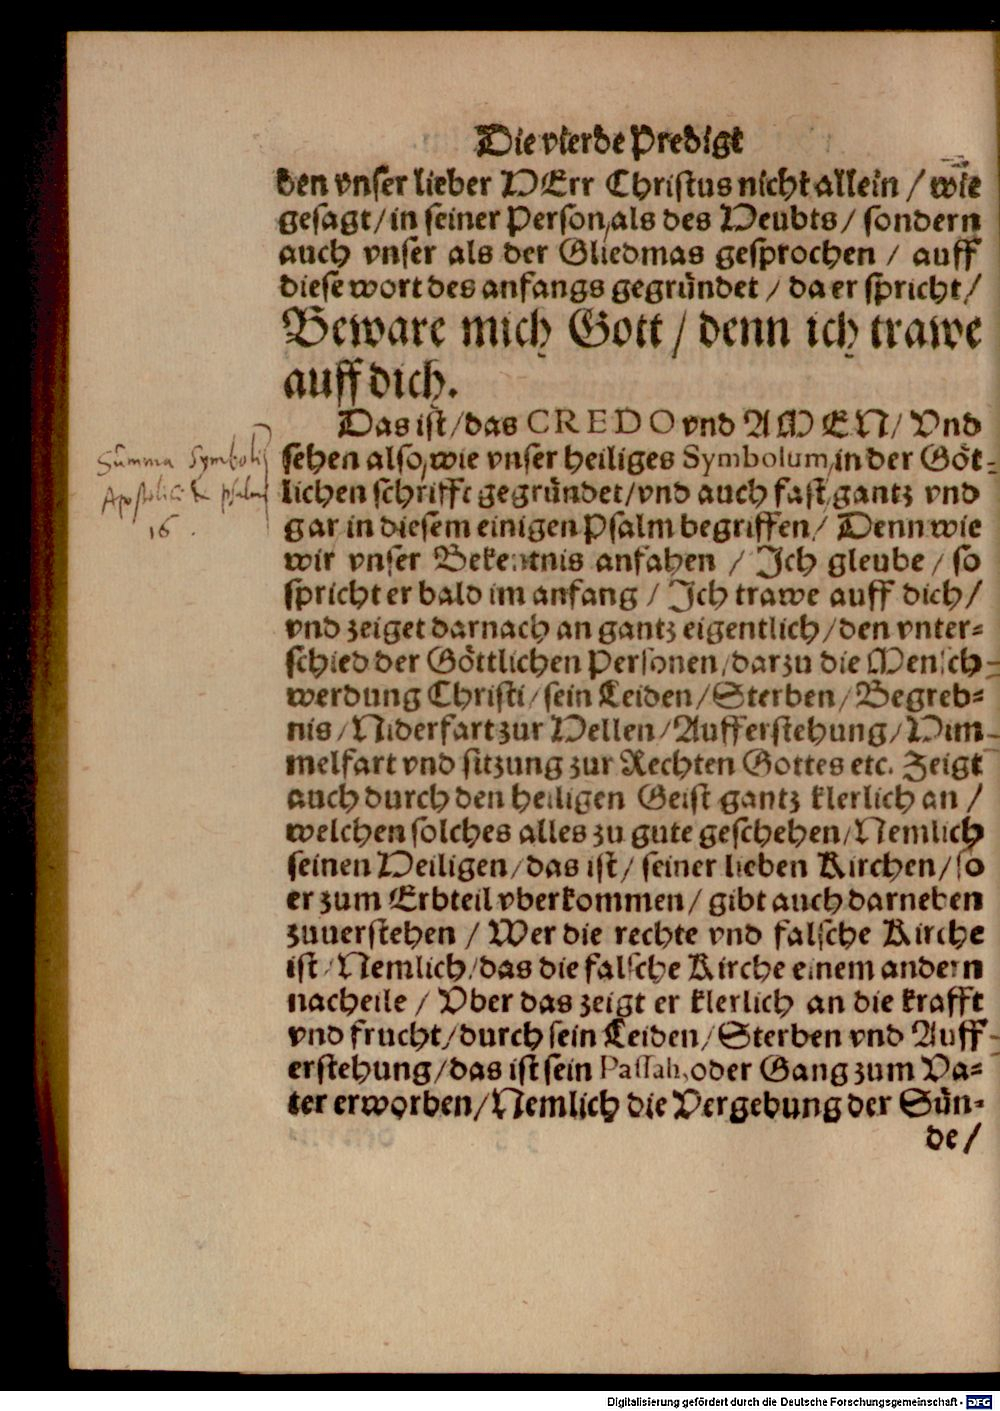 Die vierde Predigt
den vnser lieber HErr Christus nicht allein / wie
gesagt / in seiner Person, als des Heubts / sondern
auch vnser als der Gliedmas gesprochen / auff
diese wort des anfangs gegründet / da er spricht /
Beware mich Gott / denn ich trawe
auff dich.
Das ist / das CREDO vnd AMEN / Vnd
sehen also, wie vnser heiliges Symbolum, in der Göt-
lichen schrifft gegründet / vnd auch fast, gantz vnd
gar in diesem einigen Psalm begriffen / Denn wie
wir vnser Bekentnis anfahen / Ich gleube / so
spricht er bald im anfang / Ich trawe auff dich /
vnd zeiget darnach an gantz eigentlich / den vnter-
schied der Göttlichen Personen / darzu die Mensch-
werdung Christi / sein Leiden / Sterben / Begreb-
nis / Niderfart zur Hellen / Aufferstehung / Him-
melfart vnd sitzung zur Rechten Gottes etc. Zeigt
auch durch den heiligen Geist gantz klerlich an /
welchen solches alles zu gute geschehen / Nemlich
seinen Heiligen / das ist / seiner lieben Kirchen / so
er zum Erbteil vberkommen / gibt auch darneben
zuuerstehen / Wer die rechte vnd falsche Kirche
ist / Nemlich / das die falsche Kirche einem andern
nacheile / Vber das zeigt er klerlich an die krafft
vnd frucht / durch sein Leiden / Sterben vnd Auff-
erstehung / das ist sein Passah, oder Gang zum Va-
ter erworben / Nemlich die Vergebung der Sün-
de /
Summa Symboli
Apostolici psalm
16.
Digitalisierung gefördert durch die Deutsche Forschungsgemeinschaft - DFG